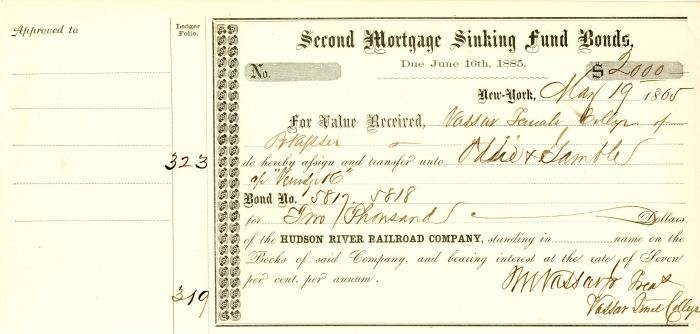 Approved to
Ledger
Folio.
323
319
Second Mortgage Sinking Fund Bonds.
Due June 16th, 1885.
No. $2000—
New-York, May 19 1865
For Value Received, Vassar Female College of
do hereby assign and transfer unto & Gamble
a/c
Bond No. 5817. 5818
for Two Thousand Dollars
of the HUDSON RIVER RAILROAD COMPANY, standing in name on the
Books of said Company, and bearing interest at the rate of Seven
per cent. per annum.
M Vassar Jr Treas
Vassar Fmel College